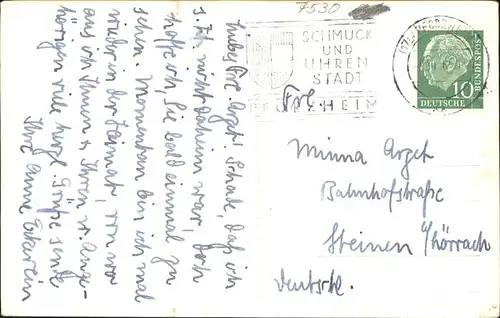 7530
SCHMUCK
UND
UHREN
STADT
PFORZHEIM
10
DEUTSCHE
BUNDESPOST
Liebes Frl. Arzet! Schade, daß ich
z. Zt. nicht daheim war, doch
hoffe ich, Sie bald einmal zu
sehen. Momentan bin ich mal
wieder in der Heimat, von wo
aus ich Ihnen u. Ihren w. Ange-
hörigen viel herzl. Grüße sende
Ihre Anne
Frl.
Minna Arzet
Bahnhofstraße
Steinen b/Lörrach
Deutschl.